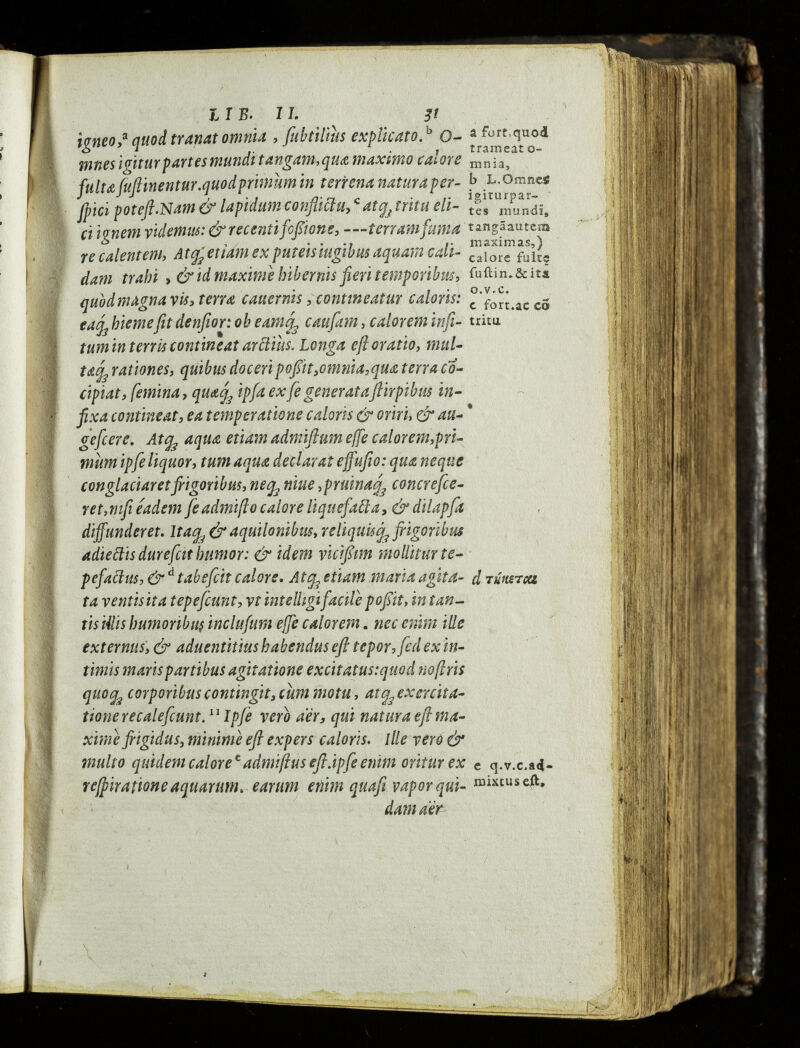 LIB. II. 31
igneo,ª quod tranat omnia , ſubtilius explicato.ᵇ O-
mnes igitur partes mundi tangam, quæ maximo calore
fultæ ſuſtinentur. quod primùm in terrena natura per-
ſpici poteſt. Nam & lapidum conflictu, ᶜ atq; tritu eli-
ci ignem videmus: & recenti foſſione, ---terram fuma
re calentem, Atq; etiam ex puteis iugibus aquam cali-
dam trahi , & id maximè hibernis fieri temporibus,
quòd magna vis, terræ cauernis , contineatur caloris:
eaq; hieme ſit denſior: ob eamq; cauſam , calorem inſi-
tum in terris contineat arctiùs. Longa eſt oratio, mul-
tæq; rationes, quibus doceri poſſit, omnia, quæ terra cō-
cipiat, ſemina, quæq; ipſa ex ſe generata ſtirpibus in-
fixa contineat, ea temperatione caloris & oriri, & au-
geſcere. Atq; aquæ etiam admiſtum eſſe calorem, pri-
mùm ipſe liquor, tum aquæ declarat effuſio: quæ neque
conglaciaret frigoribus, neq; niue , pruinaq; concreſce-
ret, niſi eadem ſe admiſto calore liquefacta, & dilapſa
diffunderet. Itaq; & aquilonibus, reliquisq; frigoribus
adiectis dureſcit humor: & idem viciſſim mollitur te-
pefactus, & ᵈ tabeſcit calore. Atq; etiam maria agita-
ta ventis ita tepeſcunt, vt intelligi facilè poſſit, in tan-
tis illis humoribus incluſum eſſe calorem. nec enim ille
externus, & aduentitius habendus eſt tepor, ſed ex in-
timis maris partibus agitatione excitatus: quod noſtris
quoq; corporibus contingit, cùm motu, atq; exercita-
tione recaleſcunt. ¹¹ Ipſe verò aër, qui natura eſt ma-
ximè frigidus, minimè eſt expers caloris. Ille verò &
multo quidem calore ᵉ admiſtus eſt. ipſe enim oritur ex
reſpiratione aquarum. earum enim quaſi vapor qui-
dam aër
a fort. quod
trameat o-
mnia,
b L. Omnes
igitur par-
tes mundi,
tangā autem
maximas,)
calore fultę
ſuſtin. & ita
o. v. c.
c fort. ac cō
tritu
d τήκεται
e q. v. c. ad-
mixtus eſt.